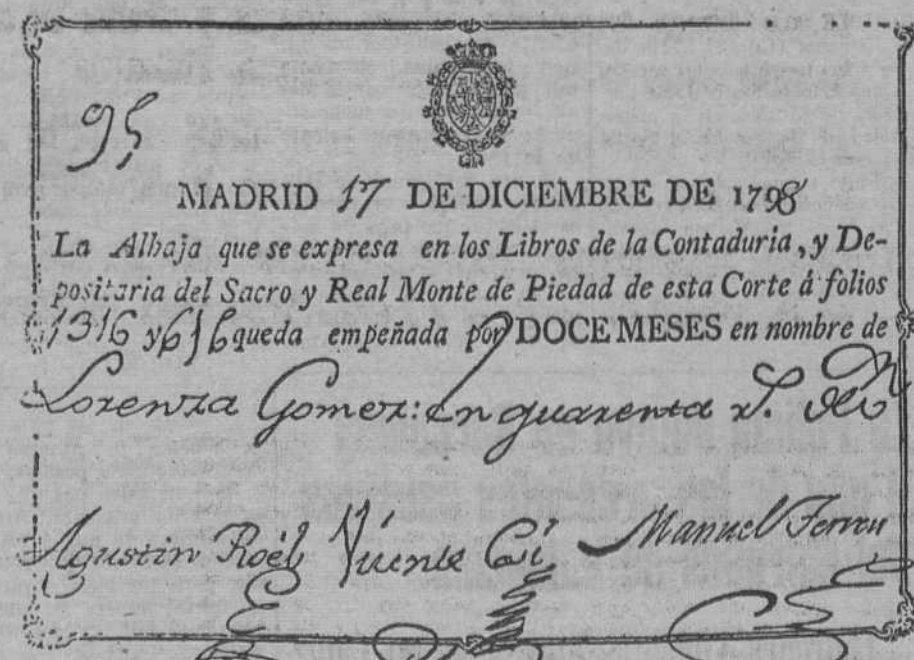 95
MADRID 17 DE DICIEMBRE DE 1798
La Alhaja que se expresa en los Libros de la Contaduria, y De-
positaria del Sacro y Real Monte de Piedad de esta Corte á folios
1316 y 616 queda empeñada por DOCE MESES en nombre de
Lorenza Gomez: en quarenta r.s
Agustin Roél Vicente Manuel